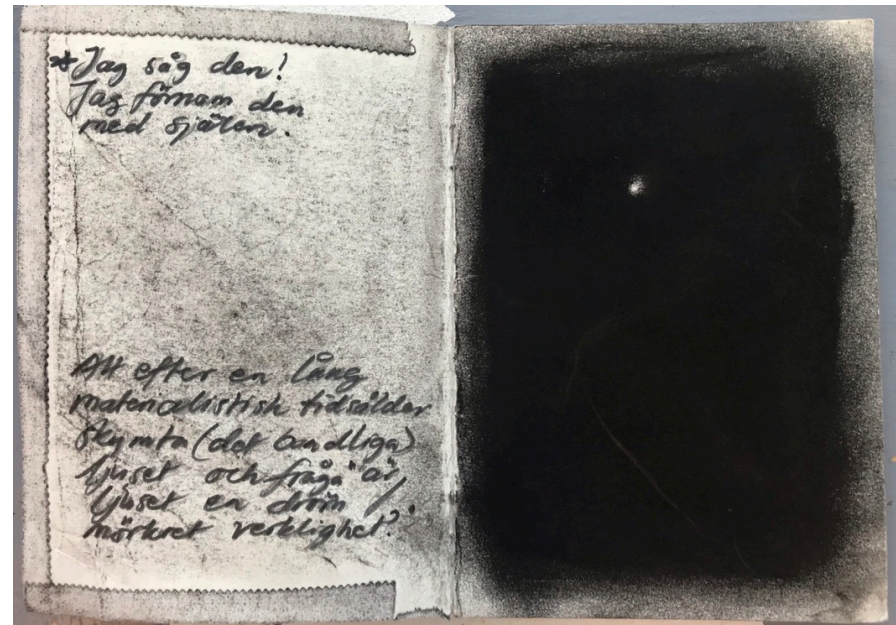 * Jag såg den!
Jag förnam den
med själen.
Att efter en lång
materialistisk tidsålder
skymta (det andliga)
ljuset och fråga "är
ljuset en dröm /
mörkret verklighet?"